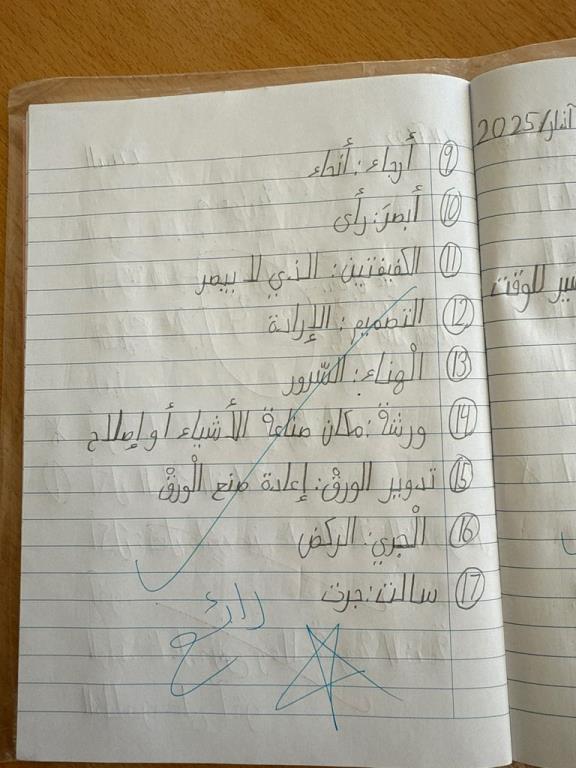 آذار/2025
سير للوقت
⑨ أرجاء: أنحاء
⑩ أبصرَ: رأى
⑪ الكفيفتين: الذي لا يبصر
⑫ التصميم: الإرادة
⑬ الْهناء: السّرور
⑭ ورشة: مكان صناعة الأشياء أو إصلاح
⑮ تدوير الورقْ: إعادة صنع الْورقْ
⑯ الْجري: الركض
⑰ سالت: جرت
رائع